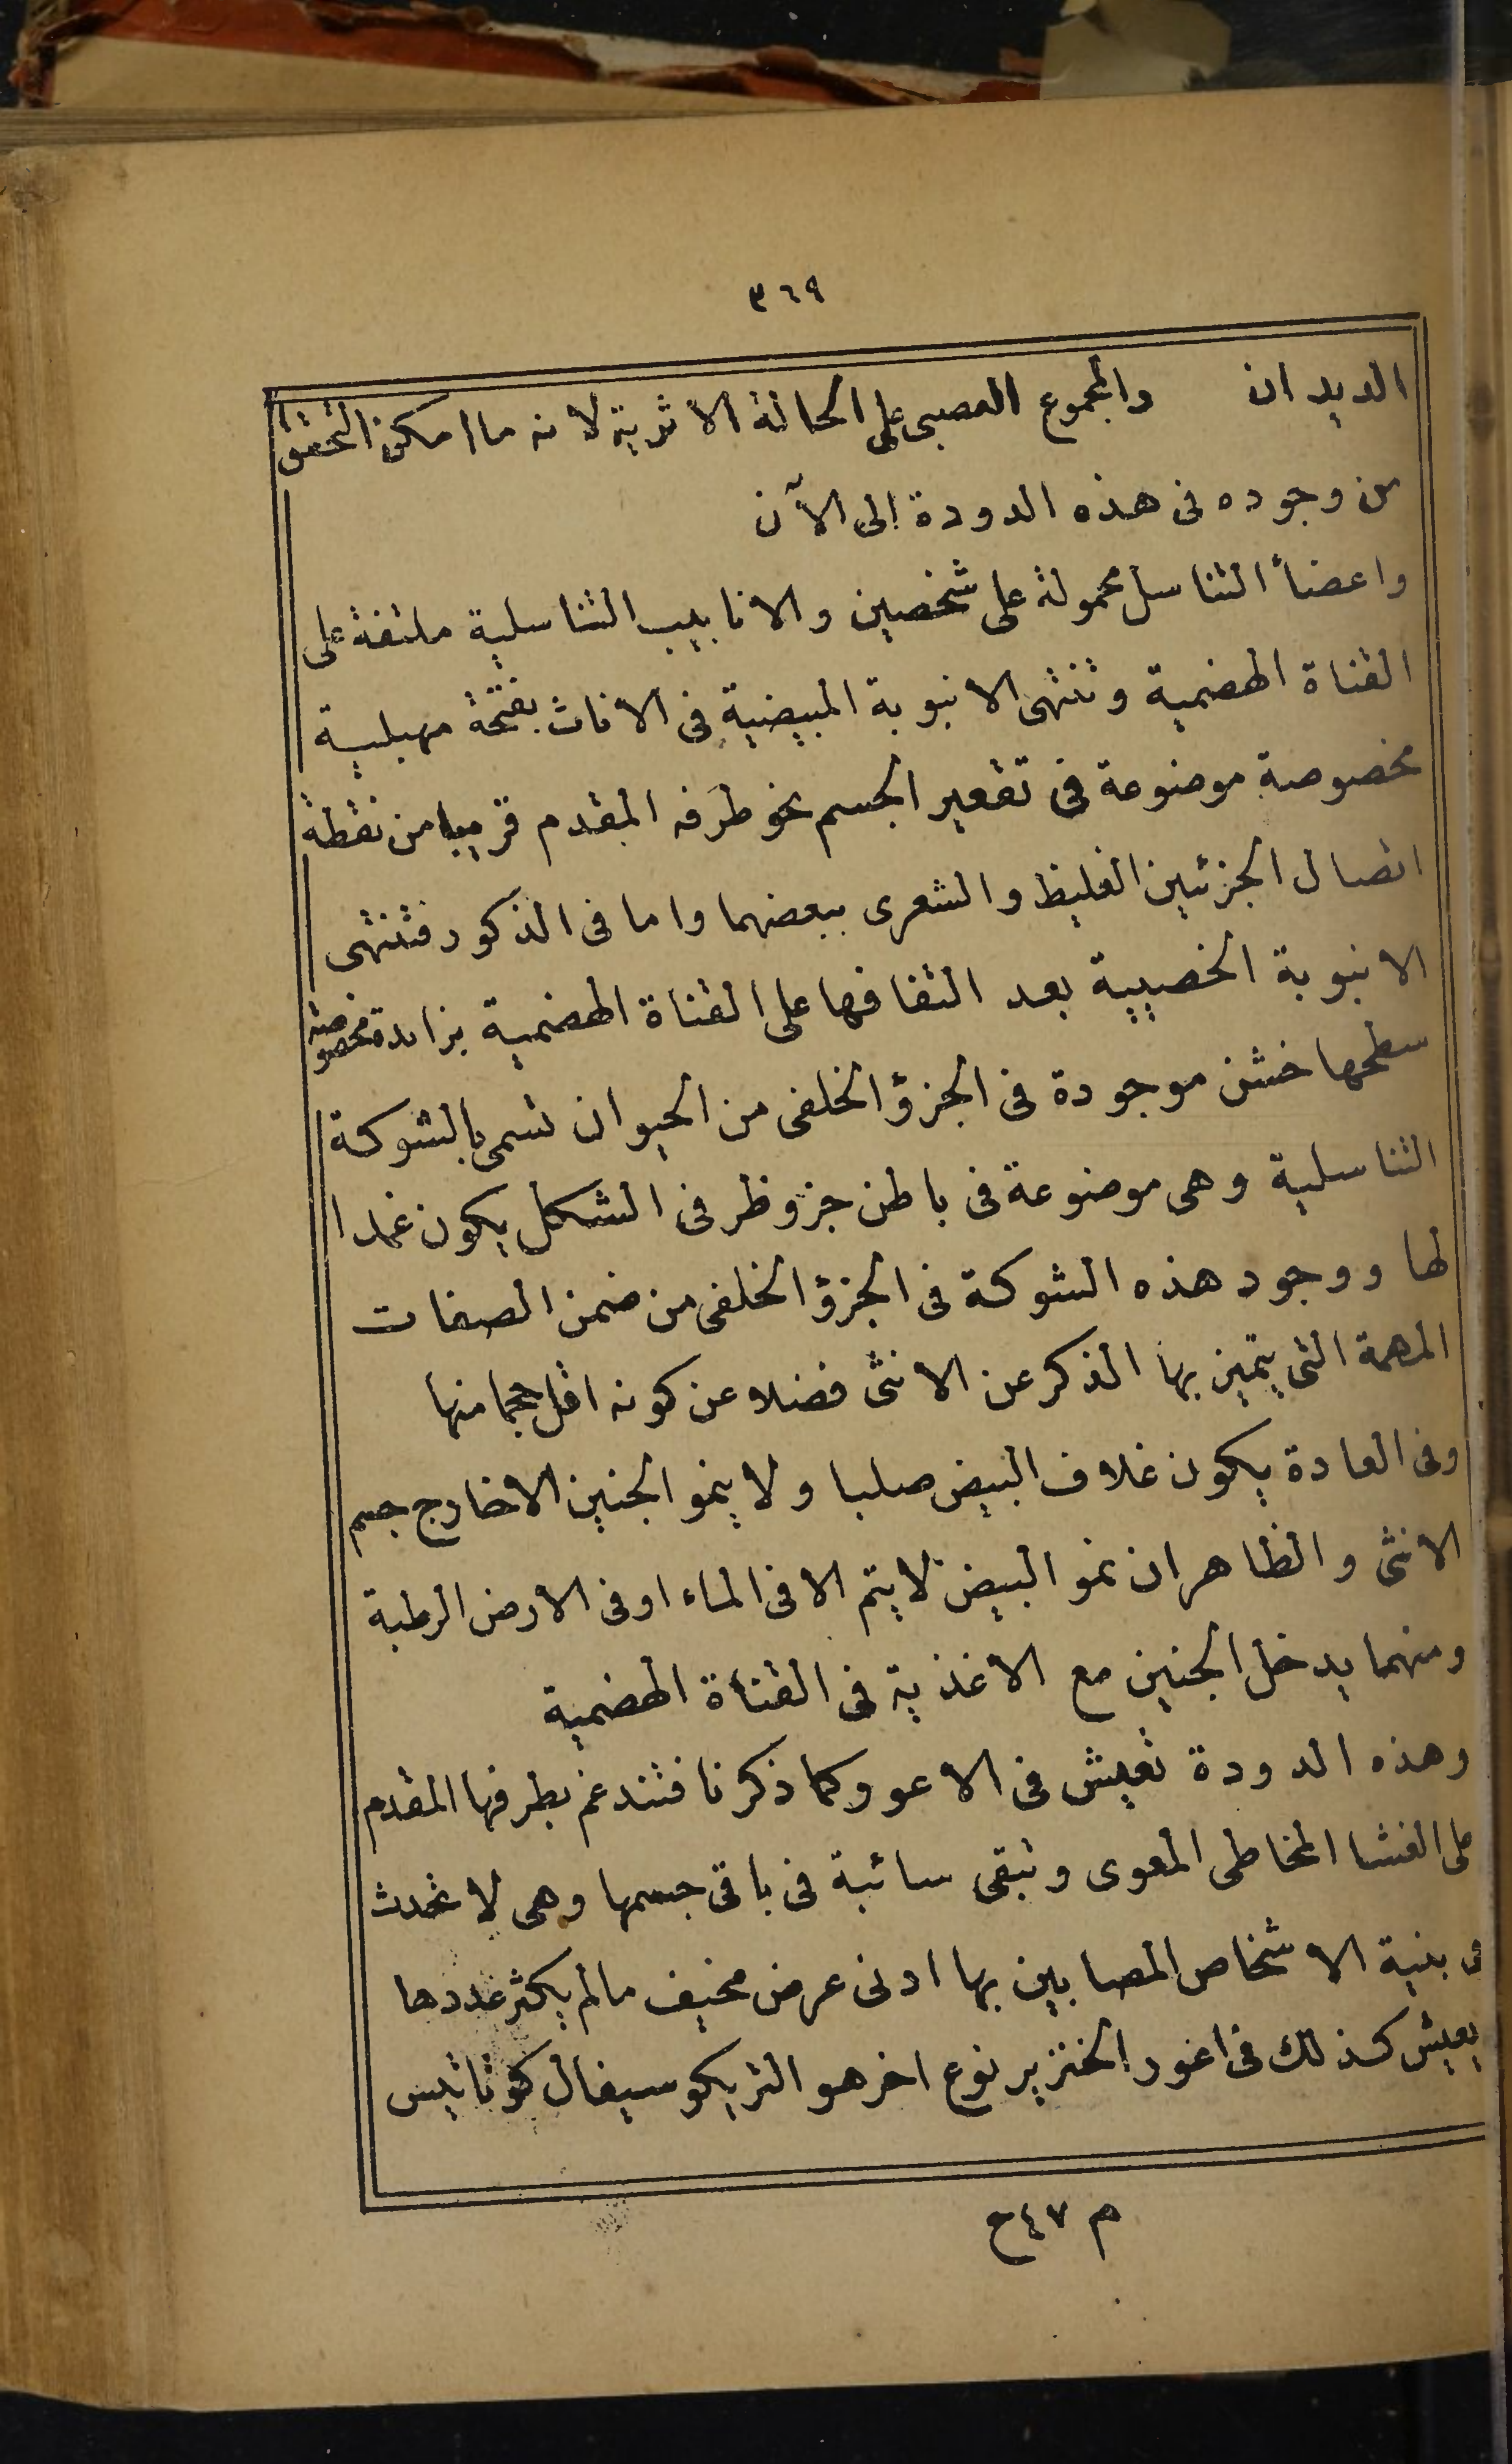 ٣٦٩
الديدان والمجموع العصبى على الحالة الاثرية لانه ما امكن التحقق
من وجوده فى هذه الدودة الى الآن
واعضأ التناسل محمولة على شخصين والانابيب التناسلية ملتفة على
القناة الهضمية وتنتهى الانبوبة المبيضية فى الاناث بفتحة مهبلية
مخصوصة موضوعة فى تقعير الجسم نحو طرفه المقدم قريبا من نقطة
اتصال الجزئين الغليظ والشعرى ببعضهما واما فى الذكور فتنتهى
الانبوبة الخصيية بعد التفافها على القناة الهضمية بزائدة مخصوصة
سطحها خشن موجودة فى الجزؤ الخلفى من الحيوان تسمى بالشوكة
التناسلية وهى موضوعة فى باطن جزو ظرفى الشكل يكون غمدا
لها ووجود هذه الشوكة فى الجزؤ الخلفى من ضمن الصفات
المهمة التى يتميز بها الذكر عن الانثى فضلا عن كونه اقل حجما منها
وفى العادة يكون غلاف البيض صلبا ولا ينمو الجنين الاخارج جسم
الانثى والظاهر ان نمو البيض لا يتم الا فى الماء او فى الارض الرطبة
ومنهما يدخل الجنين مع الاغذية فى القناة الهضمية
وهذه الدودة تعيش فى الاعور كما ذكرنا فتندغم بطرفها المقدم
على الغشا المخاطى المعوى وتبقى سائبة فى باقى جسمها وهى لا تحدث
فى بنية الاشخاص المصابين بها ادنى عرض مخيف مالم يكثر عددها
يعيش كذلك فى اغور الخنزير نوع اخر هو التريكوسيفال كوناتيس
م ٤٧ ح